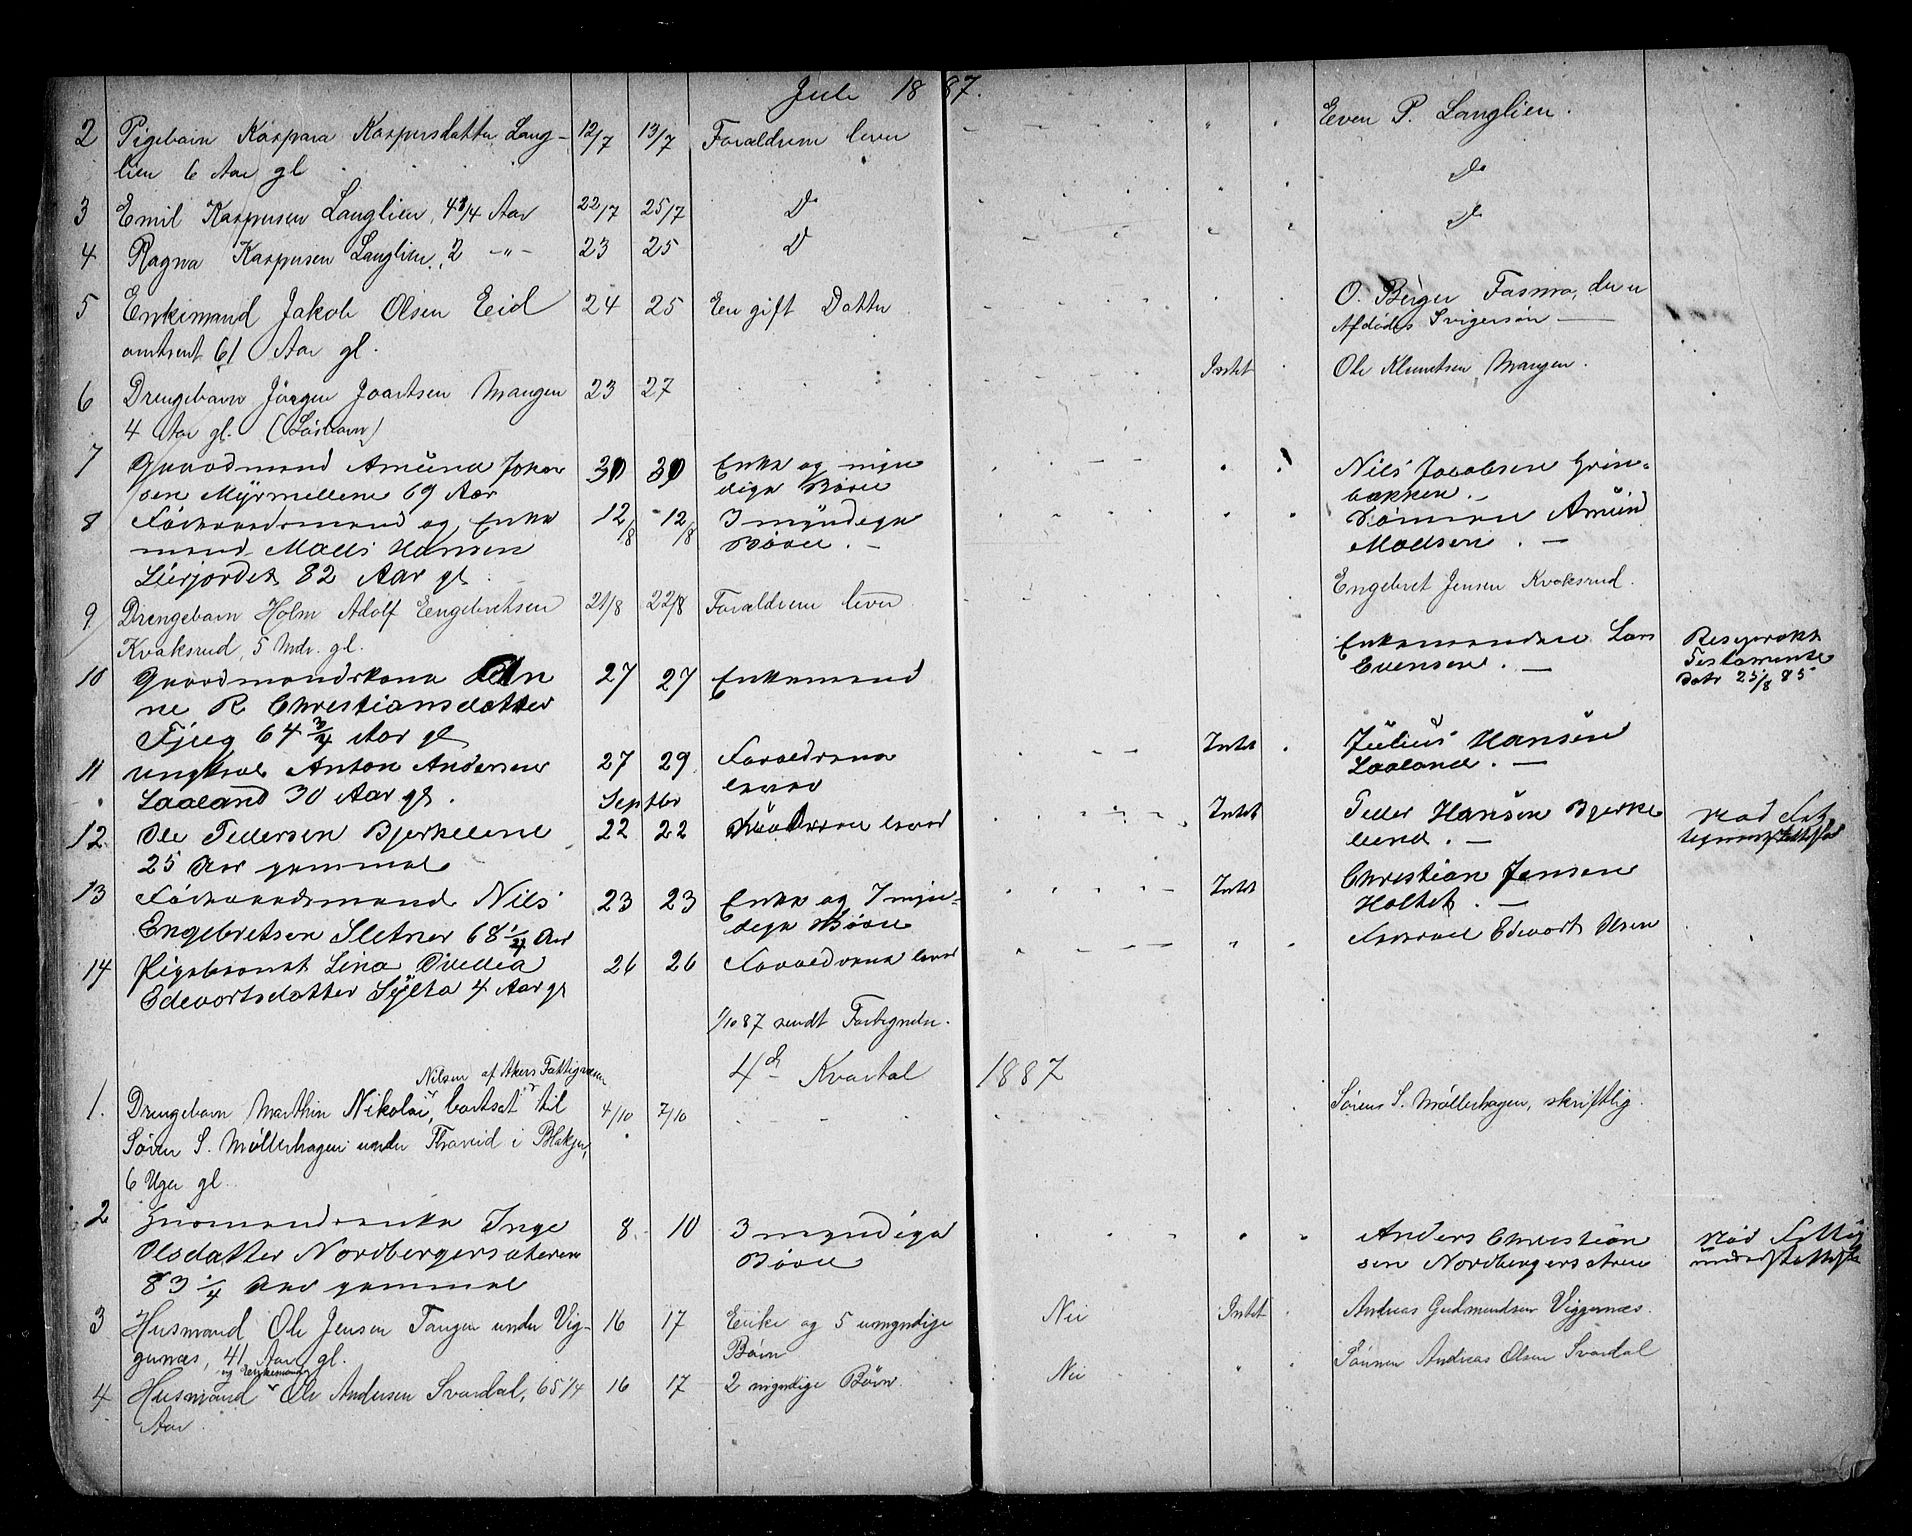 Juli 1887.
2 Pigebarn Kaspara Kaspersdatter Lang- 12/7 13/7 Forældrene lever Even P. Langlien.
lien 6 Aar gl Do
3 Emil Kaspersen Langlien, 4 3/4 Aar 22/7 25/7 Do Do
4 Ragna Kaspersen Langlien, 2 -"- 23 25 D
5 Enkemand Jakob Olsen Eid 24 25 En gift Datter O. Børger Fosmo, der er
omtrent 61 Aar gl. Afdødes Svigersøn —
6 Drengebarn Jørgen Joartsen Mangen 23 27 Intet Ole Klemetsen Mangen.
4 Aar gl. (Løsbarn)
7 Gaardmand Amund Johan 30 30 Enke og myn Nils Jacobsen Grin-
sen Myrmellene 69 Aar dige Børn bakken. -
8 Føderaadsmand og Enke 12/8 12/8 3 myndige Sønnen Amund
mand Mads Hansen Børn. - Madsen. —
Lierjordet 82 Aar gl.
9 Drengebarn Holm Adolf Engebretsen 21/8 22/8 Forældrene lever Engebret Jensen Kvaksrud.
Kvaksrud, 5 Mdr. gl.
10 Gaardmandskone An 27 27 Enkemand Enkemanden Lars Resiprokt
ne R Christiansdatter Evensen. — Testamente
Fjug 64 3/4 Aar gl Datr 25/8 85
11 Ungkarl Anton Andersen 27 29 Forældrene Intet Julius Hansen
Laaland 30 Aar gl. lever Laaland. —
Septbr
12. Ole Pedersen Bjerkelene 22 22 Forældrene lever Intet Peder Hansen Bjerke Nød Fat
25 Aar gammel lund. —
13 Føderaadsmand Nils 23 23 Enke og 7 myn- Intet Christian Jensen
Engebretsen Sletner 68 1/4 Aar dige Børn Holtet. —
14 Pigebarnet Lina Ovedia 26 26 Forældrene lever " Faderen Edevart Olsen
Edevartsdatter Sylta 4 Aar gl
1/10 87 sendt Fortegnelse.
4de Kvartal 1887
Nilsen af Akers Fattigvæsen
1. Drengebarn Marthin Nikolai, bortsat til 4/10 7/10 Sørens S. Møllerhagen, skriftlig.
Søren S. Møllerhagen under Thoreid i Blakjer,
6 Uger gl.
2 Gaardmandsenke Inge 8. 10 3 myndige Anders Christian Nød Fattig
Olsdatter Nordbergersæteren Børn sen Nordbergersætren understøttelse
83 1/4 Aar gammel
3 Husmand Ole Jensen Tangen under Vig- 16 17 Enke og 5 umyndige Nei Intet Andreas Gudmundsen Viggernæs.
gernæs, 41 Aar gl. Børn
og Enkemand
4 Husmand Ole Andersen Svardal, 65 1/4 16 17 2 myndige Børn. Nei " Sønnen Andreas Olsen Svardal
Aar.